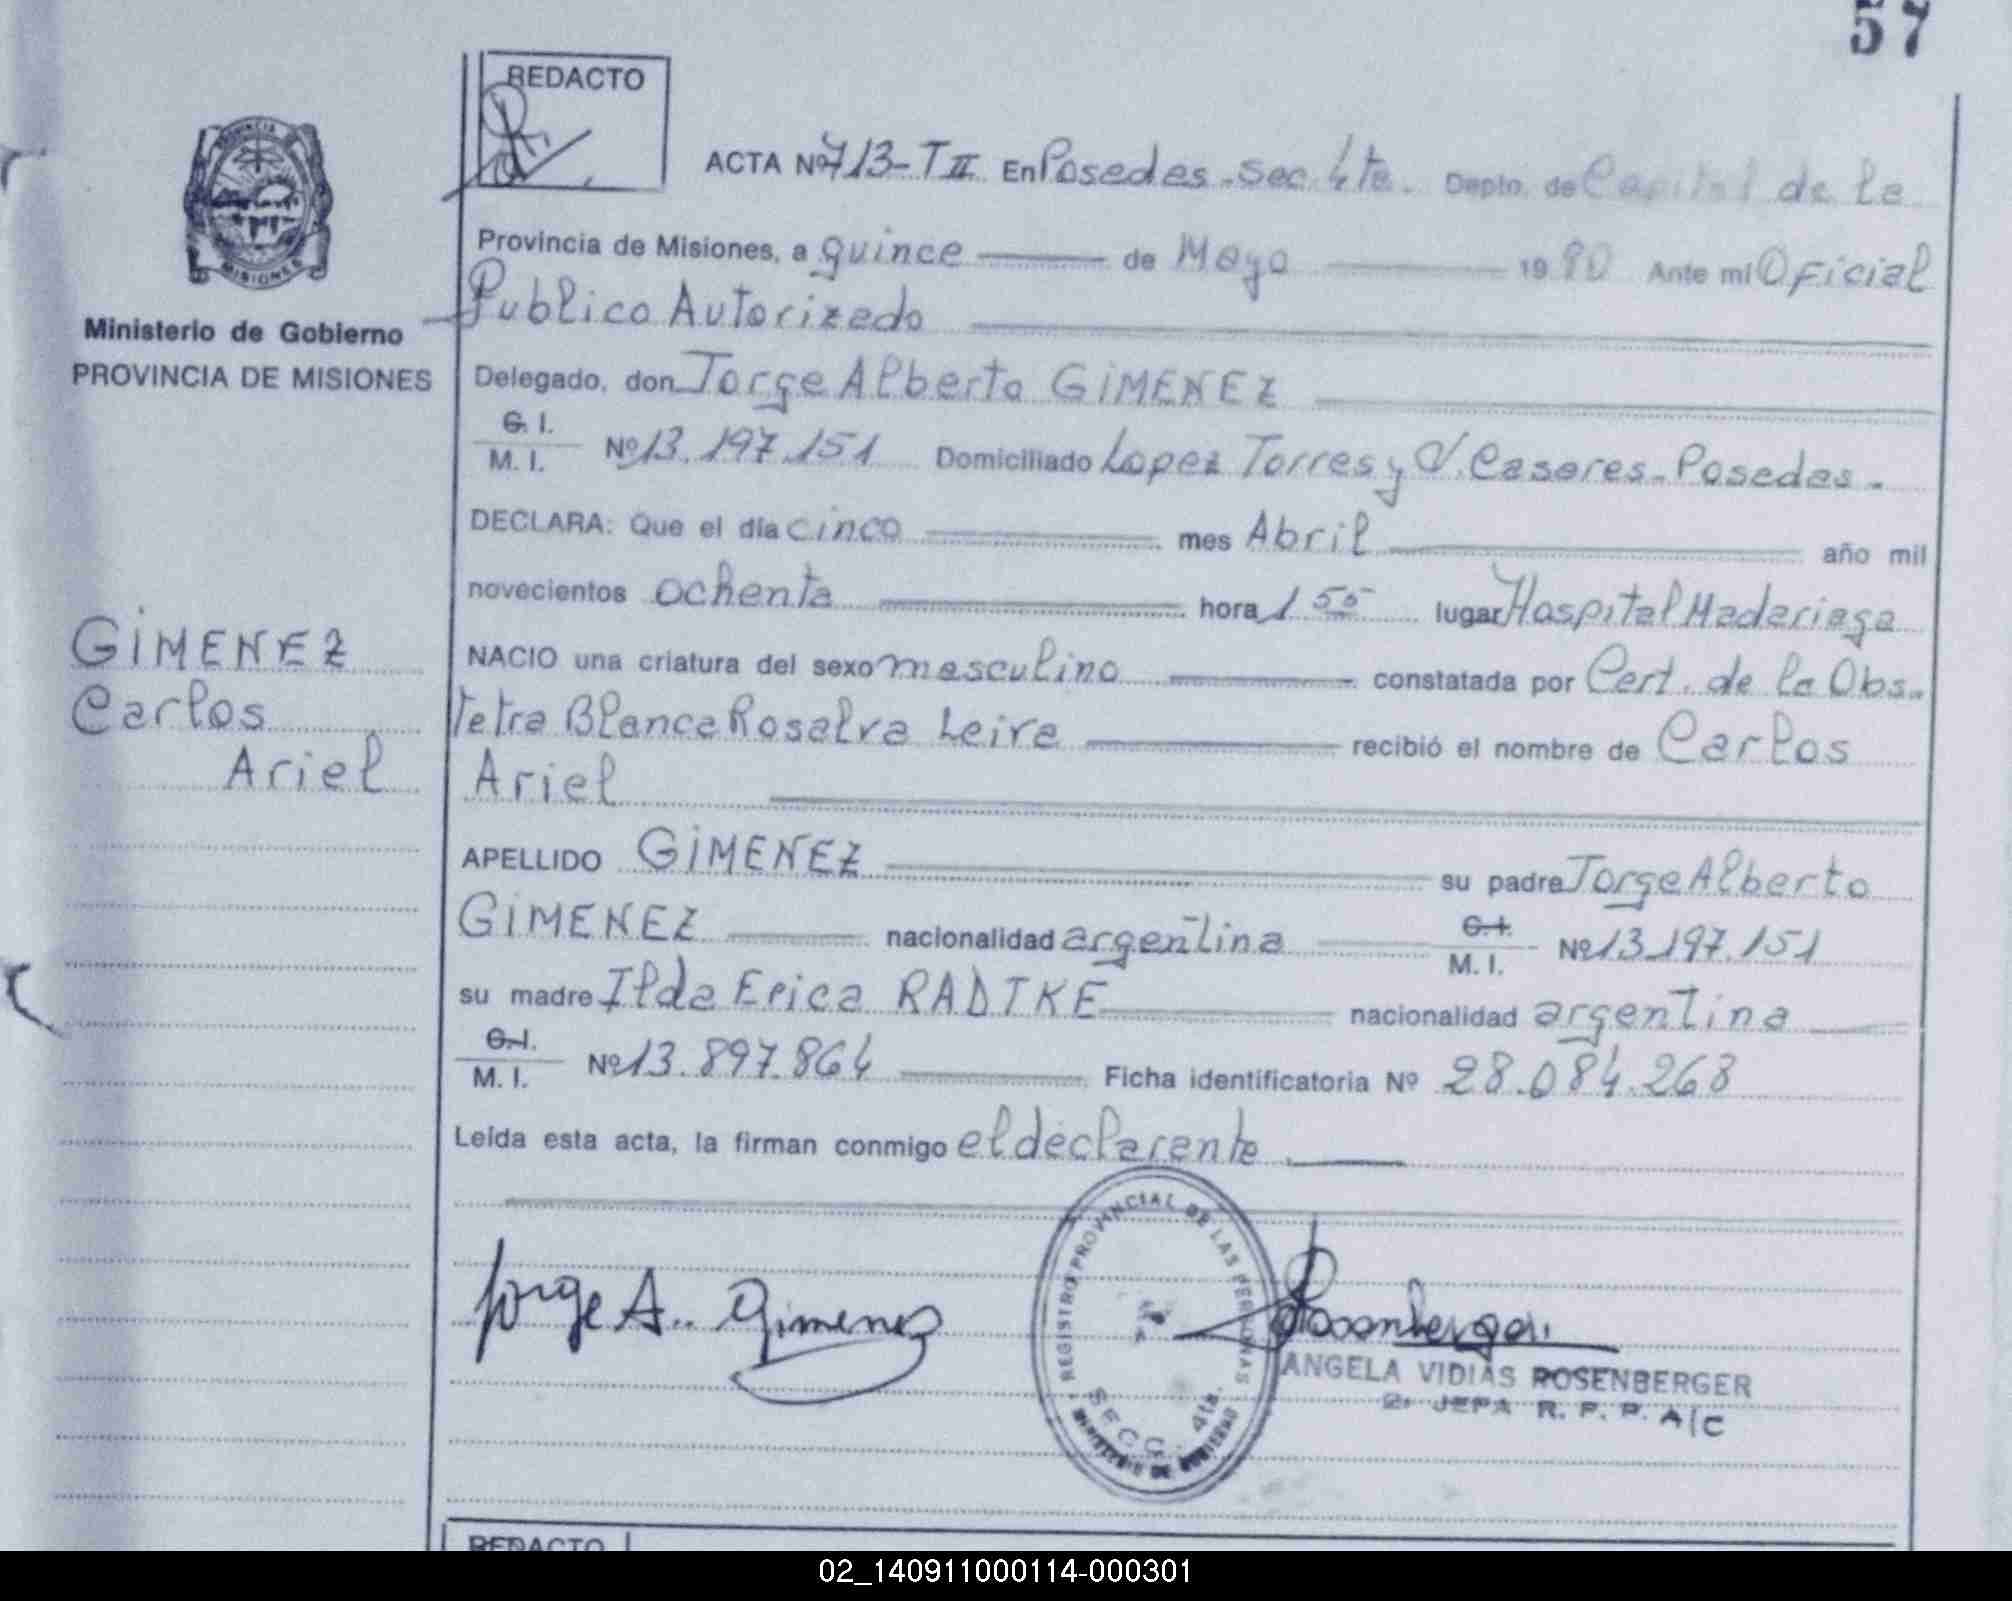 57
REDACTO
PROVINCIA DE
MISIONES
Ministerio de Gobierno
PROVINCIA DE MISIONES
ACTA Nº 713-T II En Posadas-Sec. 4ta. Depto. de Capital de la
Provincia de Misiones, a quince de Mayo 1980 Ante mí Oficial
Publico Autorizado
Delegado, don Jorge Alberto GIMENEZ
C. I.
M. I. Nº 13.197.151 Domiciliado Lopez Torres y V. Caseres-Posadas-
DECLARA: Que el día cinco mes Abril año mil
novecientos ochenta hora 1 55 lugar Hospital Madariaga
NACIO una criatura del sexo masculino constatada por Cert. de la Obs-
tetra Blanca Rosalva Leiva recibió el nombre de Carlos
Ariel
GIMENEZ
Carlos
Ariel
APELLIDO GIMENEZ su padre Jorge Alberto
GIMENEZ nacionalidad argentina C. I.
M. I. Nº 13.197.151
su madre Ilda Erica RADTKE nacionalidad argentina
C. I.
M. I. Nº 13.897.864 Ficha identificatoria Nº 28.084.268
Leída esta acta, la firman conmigo el declarante
Jorge A. Gimenez
REGISTRO PROVINCIAL DE LAS PERSONAS
SECC. 4ta.
MINISTERIO DE GOBIERNO
Rosenberger
ANGELA VIDIAS ROSENBERGER
2. JEFA R. P. P. A/C
REDACTO
02_140911000114-000301